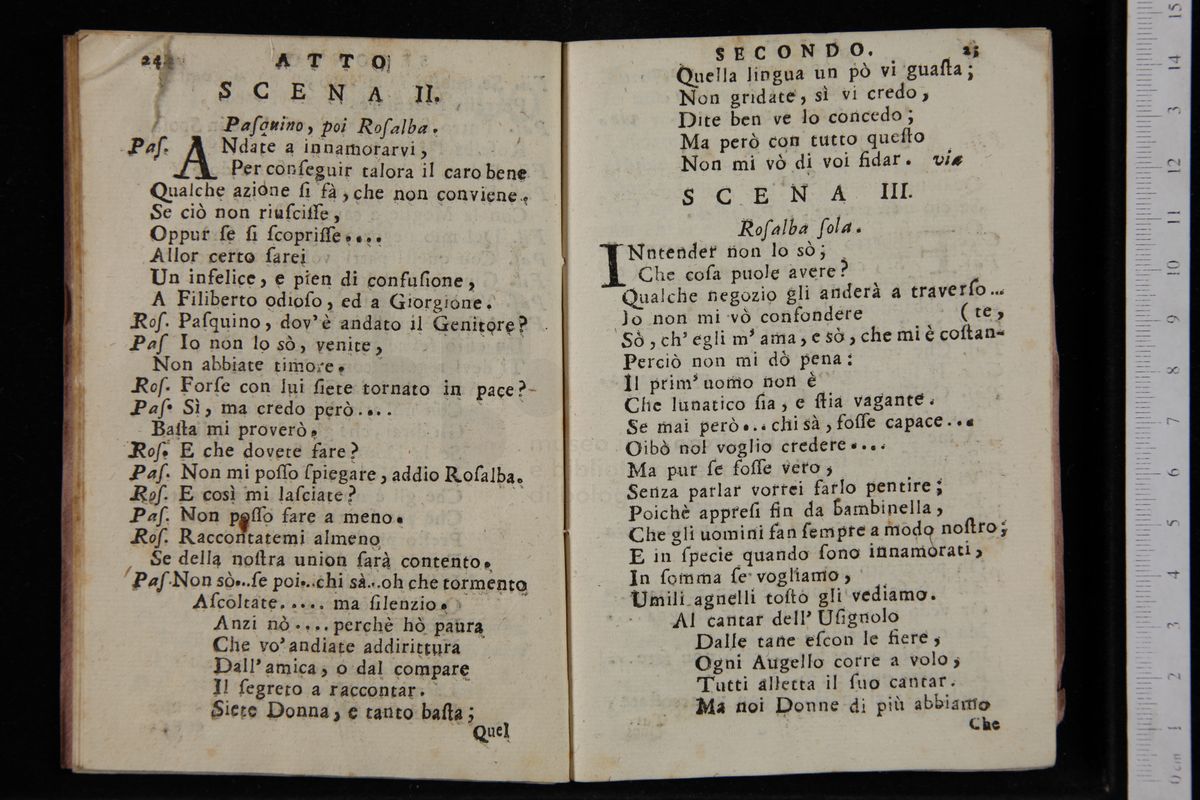 24 ATTO
SCENA II.
Paſquino, poi Roſalba.
Paſ. ANdate a innamorarvi,
Per conſeguir talora il caro bene
Qualche azione ſi fà, che non conviene.
Se ciò non riuſciſſe,
Oppur ſe ſi ſcopriſſe....
Allor certo ſarei
Un infelice, e pien di confuſione,
A Filiberto odioſo, ed a Giorgione.
Roſ. Paſquino, dov'è andato il Genitore?
Paſ Io non lo sò, venite,
Non abbiate timore.
Roſ. Forſe con lui ſiete tornato in pace?
Paſ. Sì, ma credo però....
Baſta mi proverò.
Roſ. E che dovete fare?
Paſ. Non mi poſſo ſpiegare, addio Roſalba.
Roſ. E così mi laſciate?
Paſ. Non poſſo fare a meno.
Roſ. Raccontatemi almeno
Se della noſtra union ſarà contento.
Paſ. Non sò...ſe poi...chi sà...oh che tormento
Aſcoltate..... ma ſilenzio.
Anzi nò....perchè hò paura
Che vo' andiate addirittura
Dall'amica, o dal compare
Il ſegreto a raccontar.
Siete Donna, e tanto baſta;
Quel
SECONDO. 25
Quella lingua un pò vi guaſta;
Non gridate, sì vi credo,
Dite ben ve lo concedo;
Ma però con tutto queſto
Non mi vò di voi fidar. via
SCENA III.
Roſalba ſola.
INntender non lo sò;
Che coſa puole avere?
Qualche negozio gli anderà a traverſo...
Io non mi vò confondere (te,
Sò, ch' egli m' ama, e sò, che mi è coſtan-
Perciò non mi dò pena:
Il prim' uomo non è
Che lunatico ſia, e ſtia vagante.
Se mai però... chi sà, foſſe capace...
Oibò nol voglio credere....
Ma pur ſe foſſe vero,
Senza parlar vorrei farlo pentire;
Poichè appreſi fin da bambinella,
Che gli uomini fan ſempre a modo noſtro;
E in ſpecie quando ſono innamorati,
In ſomma ſe vogliamo,
Umili agnelli toſto gli vediamo.
Al cantar dell' Uſignolo
Dalle tane eſcon le fiere,
Ogni Augello corre a volo,
Tutti alletta il ſuo cantar.
Ma noi Donne di più abbiamo
Che
0 cm 1 2 3 4 5 6 7 8 9 10 11 12 13 14 15